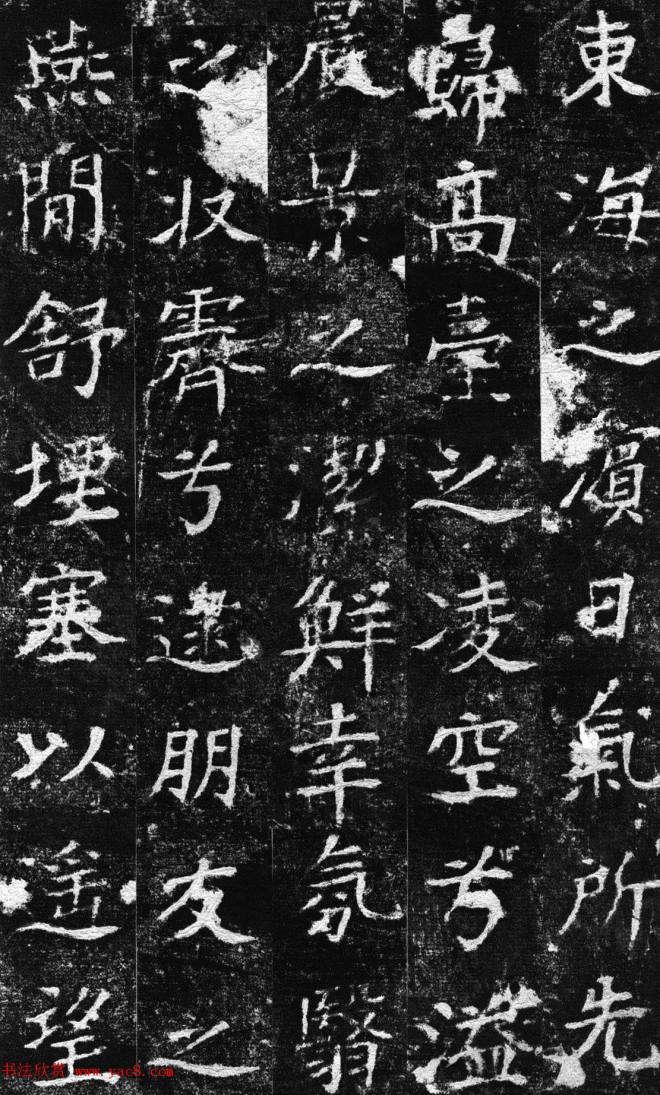 東海之濱日氣所先
巋高臺之凌空兮溢
晨景之潔鮮幸氛翳
之收霽兮逮朋友之
燕閒舒堙塞以遙望
书法欣赏 www.yac8.com